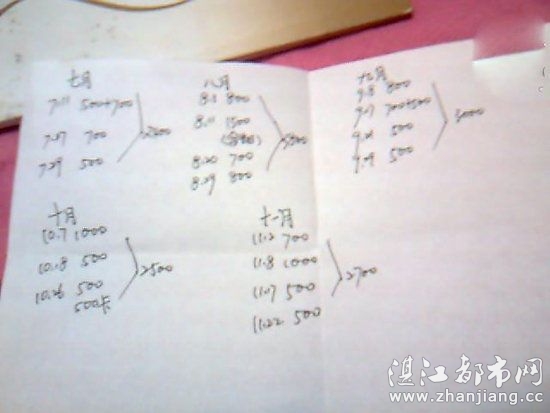 七月
7.11 500+700
7.27 700
7.29 500
2400
八月
800
8.11 1500
8.20 700
8.29 800
3800
九月
9.8 800
9.17 700+500
500
500
3000
十月
10.7 1000
10.18 500
10.26 500
500卡
2500
十一月
11.2 700
11.8 1000
11.17 500
11.22 500
2700
湛江都市网
www.zhanjiang.cc